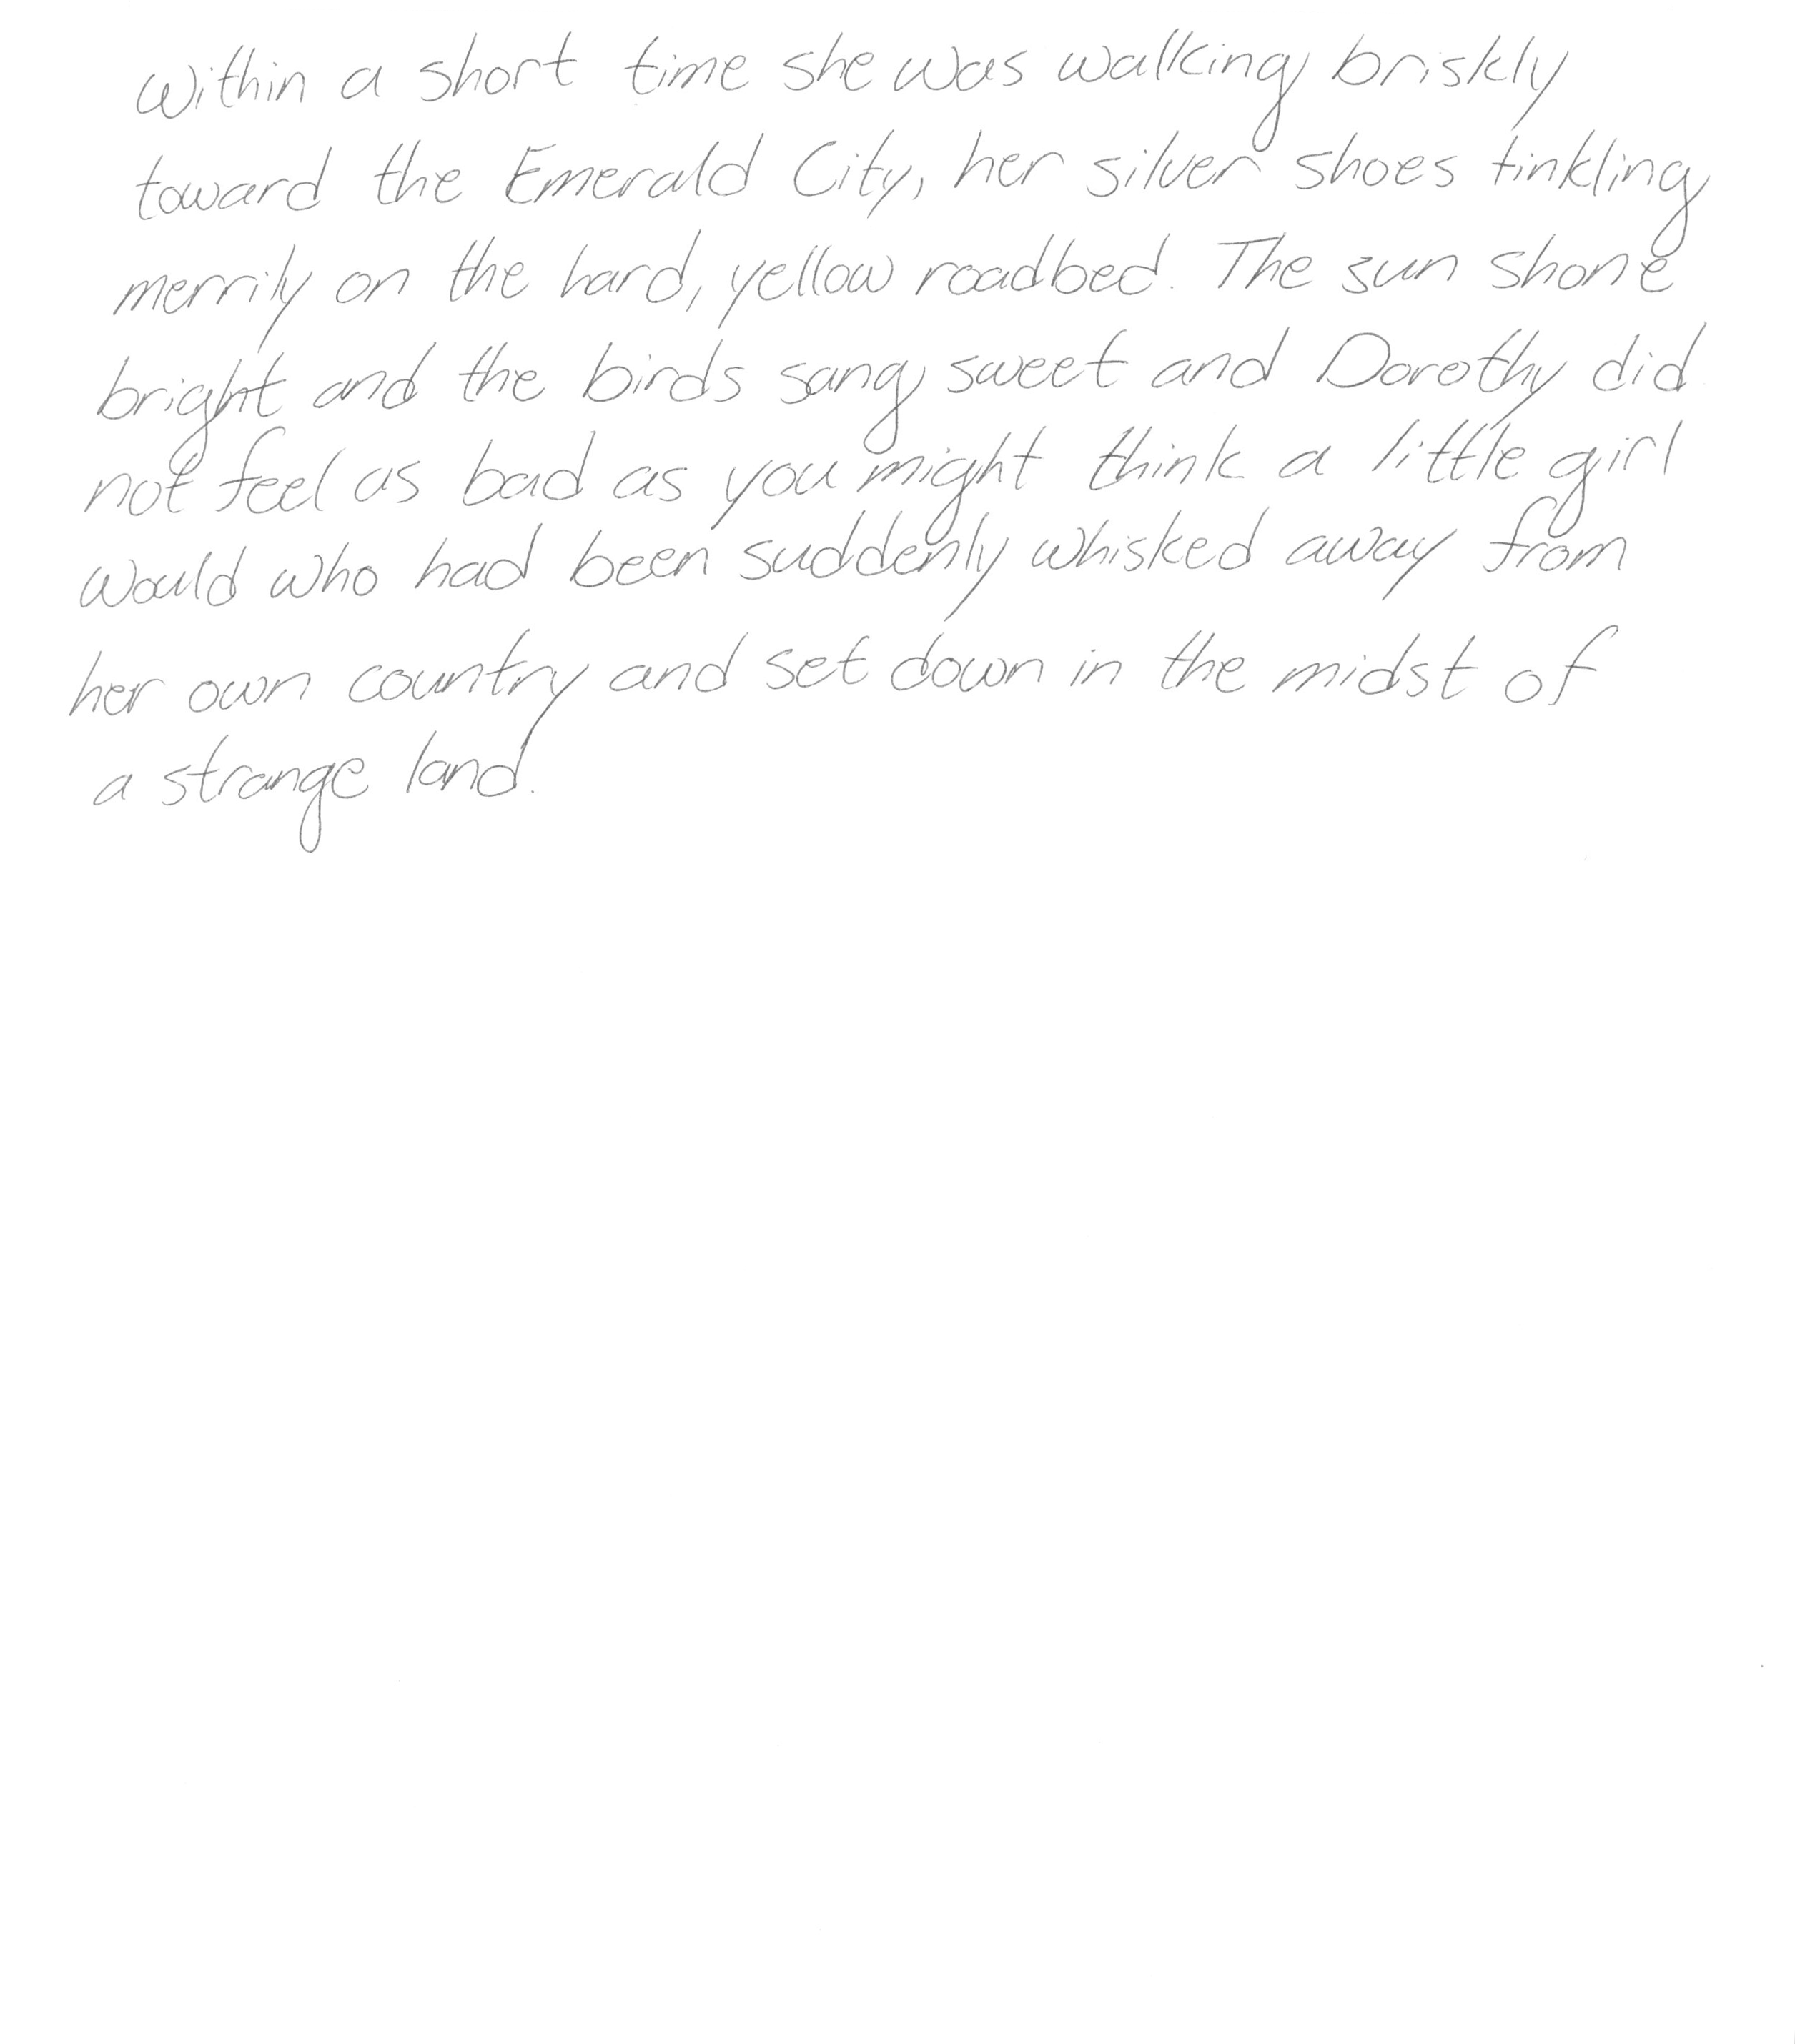 Within a short time she was walking briskly
toward the Emerald City, her silver shoes tinkling
merrily on the hard, yellow roadbed. The sun shone
bright and the birds sang sweet and Dorothy did
not feel as bad as you might think a little girl
would who had been suddenly whisked away from
her own country and set down in the midst of
a strange land.